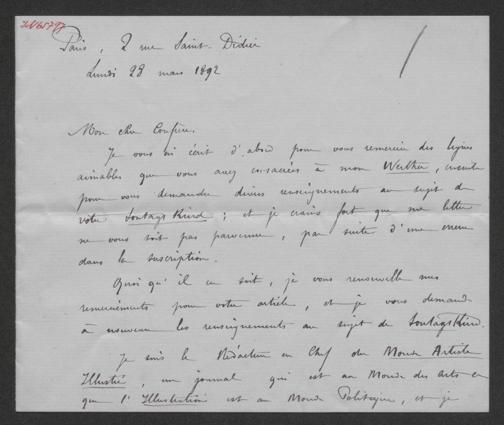 Paris, 2 rue Saint-Didier
Lundi 28 mars 1892
Mon cher Confrère,
Je vous ai écrit d'abord pour vous remercier des lignes
aimables que vous avez consacrées à mon Werther, ensuite
pour vous demander divers renseignements au sujet de
votre Sontags Kind ; et je crains fort que ma lettre
ne vous soit pas parvenue, par suite d'une erreur
dans la suscription.
Quoi qu'il en soit, je vous renouvelle mes
remerciements pour votre article, et je vous demande
à nouveau les renseignements au sujet de SontagsKind.
Je suis le Rédacteur en Chef du Monde Artiste
Illustré, un journal qui est au Monde des arts ce
que l'Illustration est au Monde Politique, et je